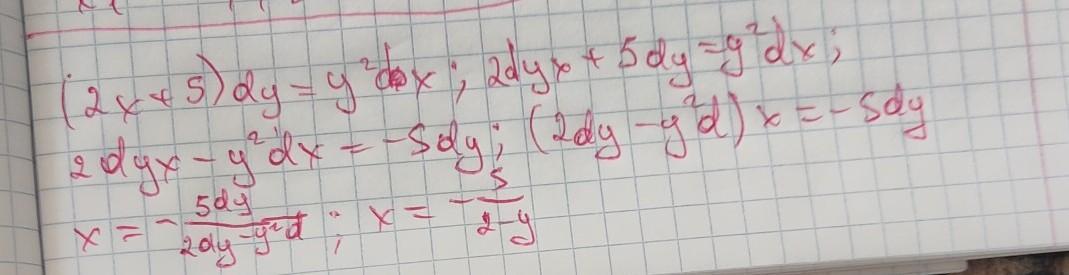 (2x+5)dy=y²dx; 2dyx+5dy=y²dx;
2dyx-y²dx=-5dy; (2dy-y²d)x=-5dy
x=-\frac{5dy}{2dy-y²d}; x=-\frac{5}{2-y}